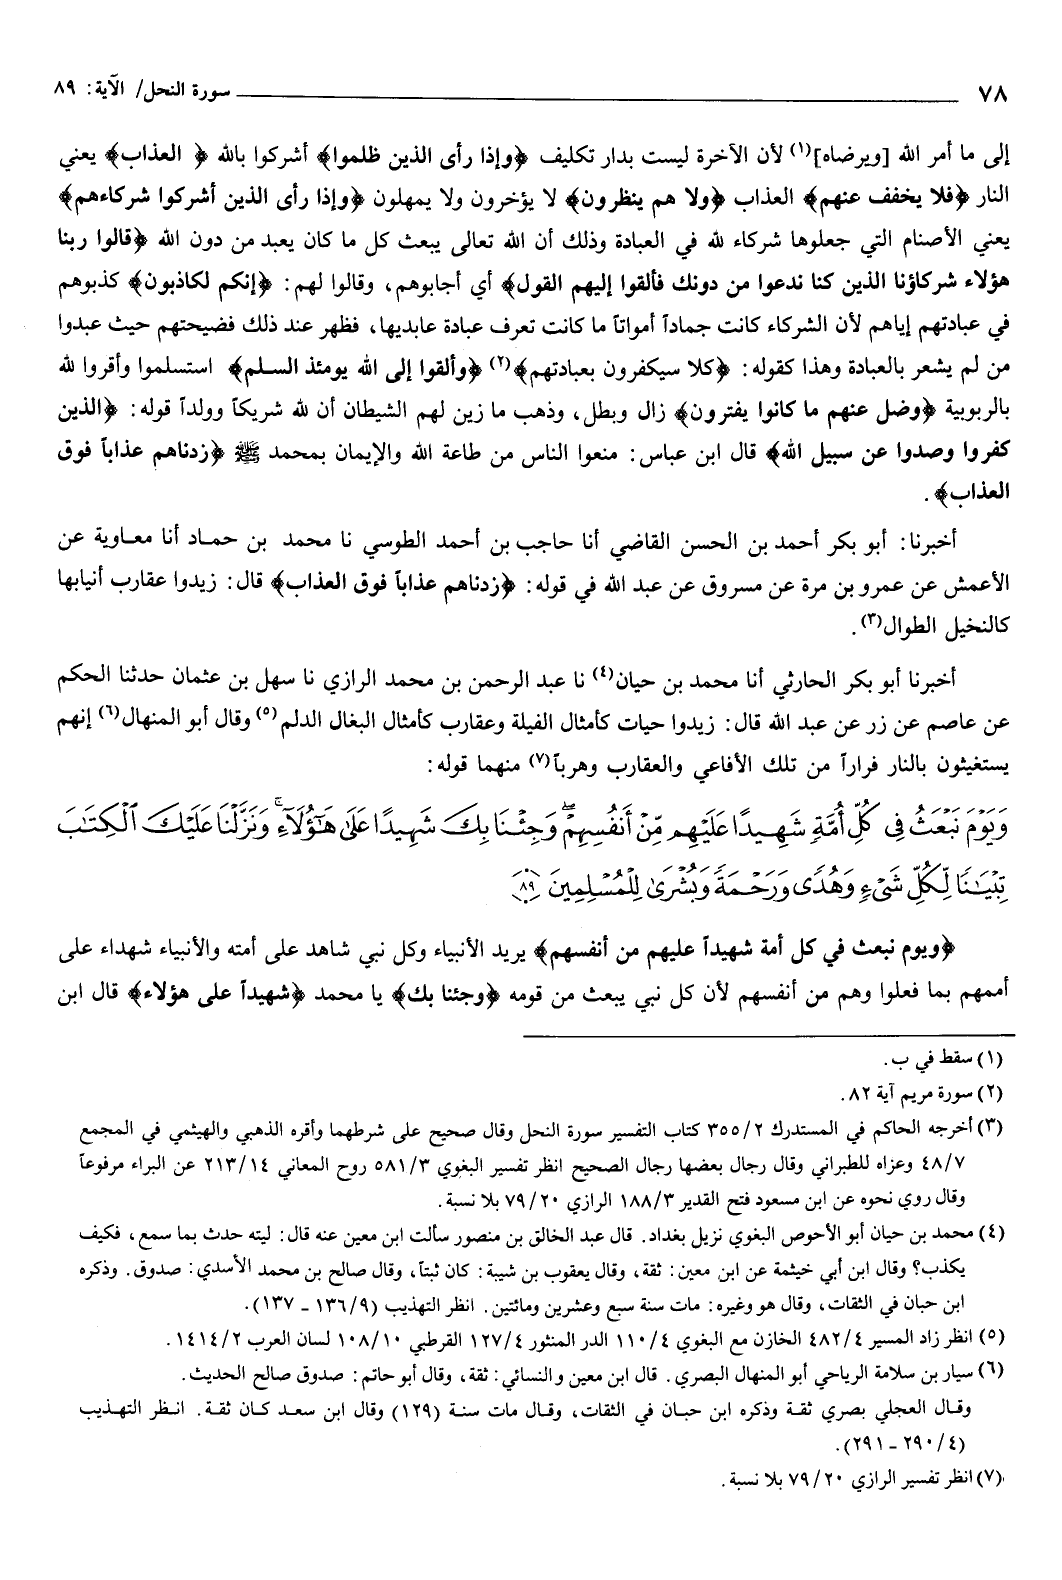 ٧٨ سورة النحل/ الآية: ٨٩
إلى ما أمر الله [ويرضاه](١) لأن الآخرة ليست بدار تكليف ﴿وإذا رأى الذين ظلموا﴾ أشركوا بالله ﴿ العذاب﴾ يعني
النار ﴿فلا يخفف عنهم﴾ العذاب ﴿ولا هم ينظرون﴾ لا يؤخرون ولا يمهلون ﴿وإذا رأى الذين أشركوا شركاءهم﴾
يعني الأصنام التي جعلوها شركاء لله في العبادة وذلك أن الله تعالى يبعث كل ما كان يعبد من دون الله ﴿قالوا ربنا
هؤلاء شركاؤنا الذين كنا ندعوا من دونك فألقوا إليهم القول﴾ أي أجابوهم، وقالوا لهم: ﴿إنكم لكاذبون﴾ كذبوهم
في عبادتهم إياهم لأن الشركاء كانت جماداً أمواتاً ما كانت تعرف عبادة عابديها، فظهر عند ذلك فضيحتهم حيث عبدوا
من لم يشعر بالعبادة وهذا كقوله: ﴿كلا سيكفرون بعبادتهم﴾(٢) ﴿وألقوا إلى الله يومئذ السلم﴾ استسلموا وأقروا لله
بالربوبية ﴿وضل عنهم ما كانوا يفترون﴾ زال وبطل، وذهب ما زين لهم الشيطان أن لله شريكاً وولداً قوله: ﴿الذين
كفروا وصدوا عن سبيل الله﴾ قال ابن عباس: منعوا الناس من طاعة الله والإيمان بمحمد ﷺ ﴿زدناهم عذاباً فوق
العذاب﴾.
أخبرنا: أبو بكر أحمد بن الحسن القاضي أنا حاجب بن أحمد الطوسي نا محمد بن حماد أنا معاوية عن
الأعمش عن عمرو بن مرة عن مسروق عن عبد الله في قوله: ﴿زدناهم عذاباً فوق العذاب﴾ قال: زيدوا عقارب أنيابها
كالنخيل الطوال(٣).
أخبرنا أبو بكر الحارثي أنا محمد بن حيان(٤) نا عبد الرحمن بن محمد الرازي نا سهل بن عثمان حدثنا الحكم
عن عاصم عن زر عن عبد الله قال: زيدوا حيات كأمثال الفيلة وعقارب كأمثال البغال الدلم(٥) وقال أبو المنهال(٦) إنهم
يستغيثون بالنار فراراً من تلك الأفاعي والعقارب وهرباً(٧) منهما قوله:
وَيَوْمَ نَبْعَثُ فِي كُلِّ أُمَّةٍ شَهِيدًا عَلَيْهِم مِّنْ أَنفُسِهِمْ ۖ وَجِئْنَا بِكَ شَهِيدًا عَلَىٰ هَٰؤُلَاءِ ۚ وَنَزَّلْنَا عَلَيْكَ الْكِتَٰبَ
تِبْيَٰنًا لِّكُلِّ شَيْءٍ وَهُدًى وَرَحْمَةً وَبُشْرَىٰ لِلْمُسْلِمِينَ ﴿٨٩﴾
﴿ويوم نبعث في كل أمة شهيداً عليهم من أنفسهم﴾ يريد الأنبياء وكل نبي شاهد على أمته والأنبياء شهداء على
أممهم بما فعلوا وهم من أنفسهم لأن كل نبي يبعث من قومه ﴿وجئنا بك﴾ يا محمد ﴿شهيداً على هؤلاء﴾ قال ابن
(١) سقط في ب.
(٢) سورة مريم آية ٨٢.
(٣) أخرجه الحاكم في المستدرك ٣٥٥/٢ كتاب التفسير سورة النحل وقال صحيح على شرطهما وأقره الذهبي والهيثمي في المجمع
٤٨/٧ وعزاه للطبراني وقال رجال بعضها رجال الصحيح انظر تفسير البغوي ٥٨١/٣ روح المعاني ٢١٣/١٤ عن البراء مرفوعاً
وقال روي نحوه عن ابن مسعود فتح القدير ١٨٨/٣ الرازي ٧٩/٢٠ بلا نسبة.
(٤) محمد بن حيان أبو الأحوص البغوي نزيل بغداد. قال عبد الخالق بن منصور سألت ابن معين عنه قال: ليته حدث بما سمع، فكيف
يكذب؟ وقال ابن أبي خيثمة عن ابن معين: ثقة، وقال يعقوب بن شيبة: كان ثبتاً، وقال صالح بن محمد الأسدي: صدوق. وذكره
ابن حبان في الثقات، وقال هو وغيره: مات سنة سبع وعشرين ومائتين. انظر التهذيب (١٣٦/٩ - ١٣٧).
(٥) انظر زاد المسير ٤٨٢/٤ الخازن مع البغوي ١١٠/٤ الدر المنثور ١٢٧/٤ القرطبي ١٠٨/١٠ لسان العرب ١٤١٤/٢.
(٦) سيار بن سلامة الرياحي أبو المنهال البصري. قال ابن معين والنسائي: ثقة، وقال أبو حاتم: صدوق صالح الحديث.
وقال العجلي بصري ثقة وذكره ابن حبان في الثقات، وقال مات سنة (١٢٩) وقال ابن سعد كان ثقة. انظر التهذيب
(٢٩٠/٤ - ٢٩١).
(٧) انظر تفسير الرازي ٧٩/٢٠ بلا نسبة.